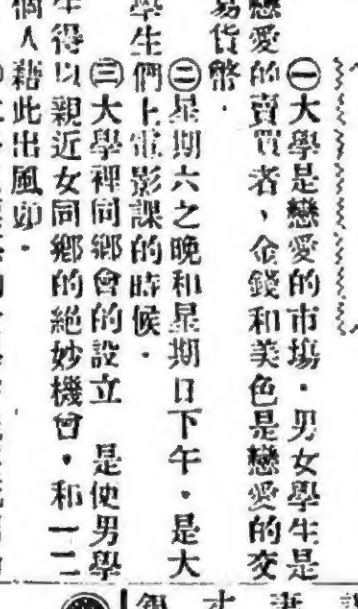 ㊀大學是戀愛的市場．男女學生是
戀愛的賣買者，金錢和美色是戀愛的交
易貨幣．
㊁星期六之晚和星期日下午．是大
學生們上電影課的時候．
㊂大學裡同鄉會的設立　是使男學
生得以親近女同鄉的絕妙機會．和一二
個人藉此出風頭．